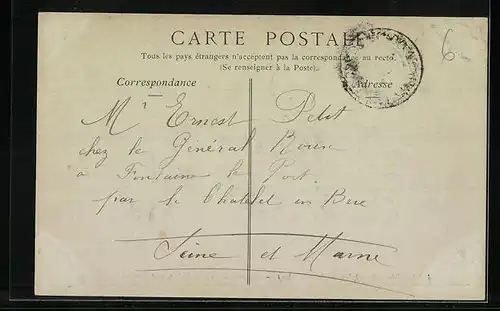 CARTE POSTALE
Tous les pays étrangers n'acceptent pas la correspondance au recto.
(Se renseigner à la Poste).
6
Correspondance
Adresse
Mr Ernest Petit
chez le Général
à Fontaine le Port
par le Chatelet en Brie
Seine et Marne